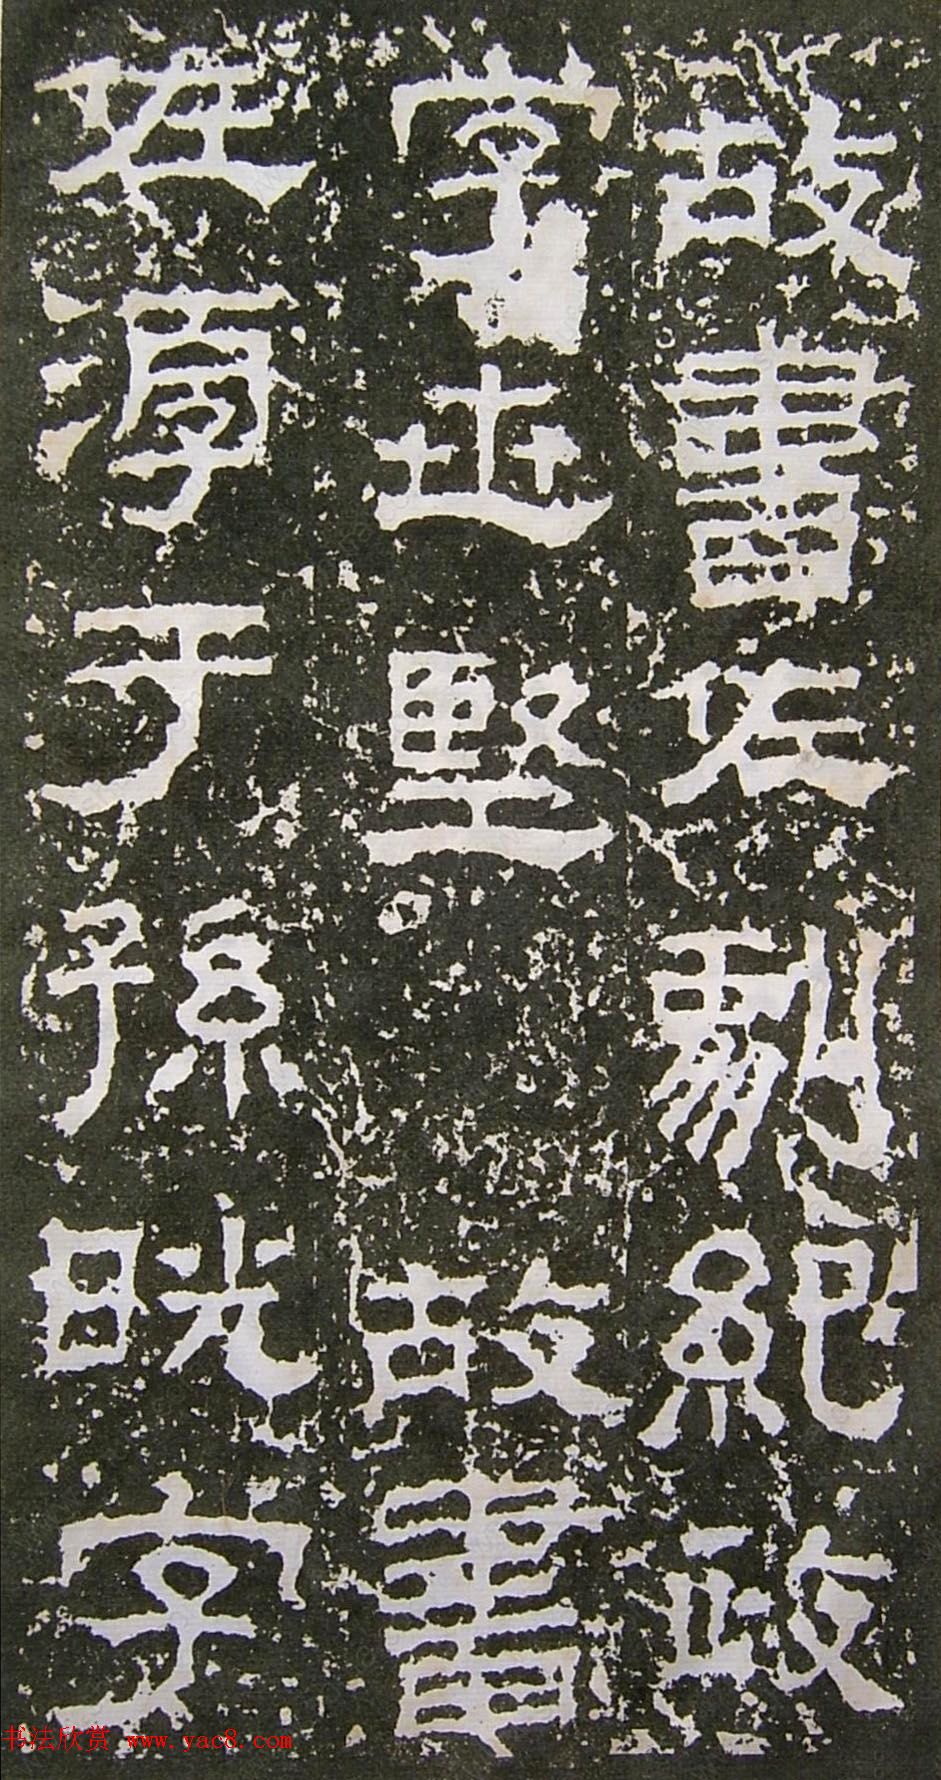 故書佐劇紀政
字世堅 故書
佐淳于孫晄字
书法欣赏 www.yac8.com